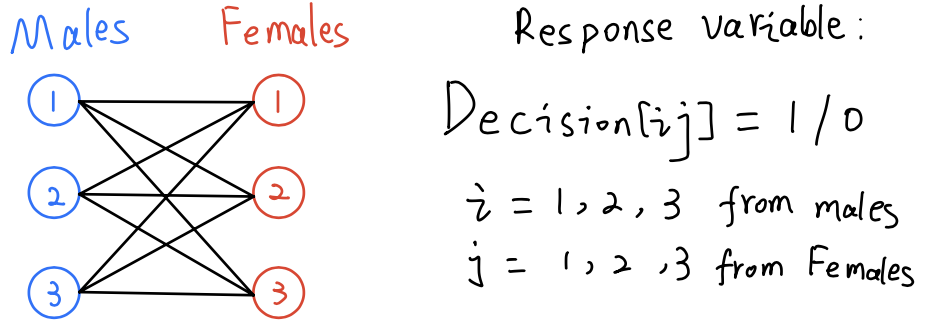 Males Females
1 1
2 2
3 3
Response variable:
Decision[ij] = 1/0
i = 1, 2, 3 from males
j = 1, 2, 3 from Females